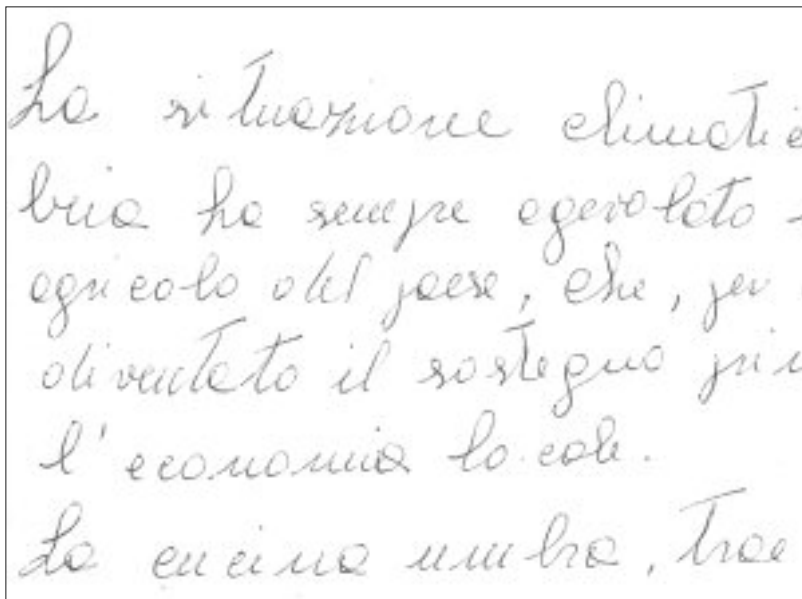 La situazione climatic
bria ha sempre agevolato
agricolo del paese, che, per
diventato il sostegno prin
l'economia locale.
La cucina umbra, trae